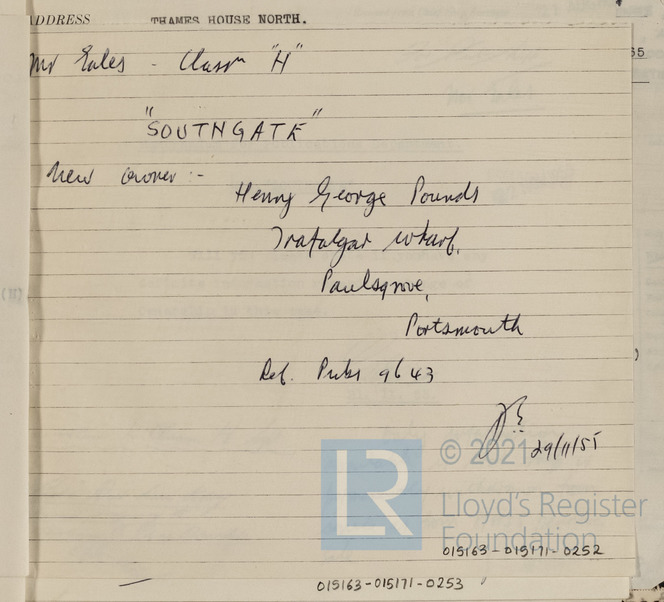 ADDRESS THAMES HOUSE NORTH.
Mr Eales - Classn "H"
"SOUTHGATE"
New owner :-
Henry George Pounds
Trafalgar Wharf,
Paulsgrove,
Portsmouth
Ref. Pubs 9643
29/11/55
LR
© 2021
Lloyd's Register
Foundation
015163-015171-0252
015163-015171-0253
(H)